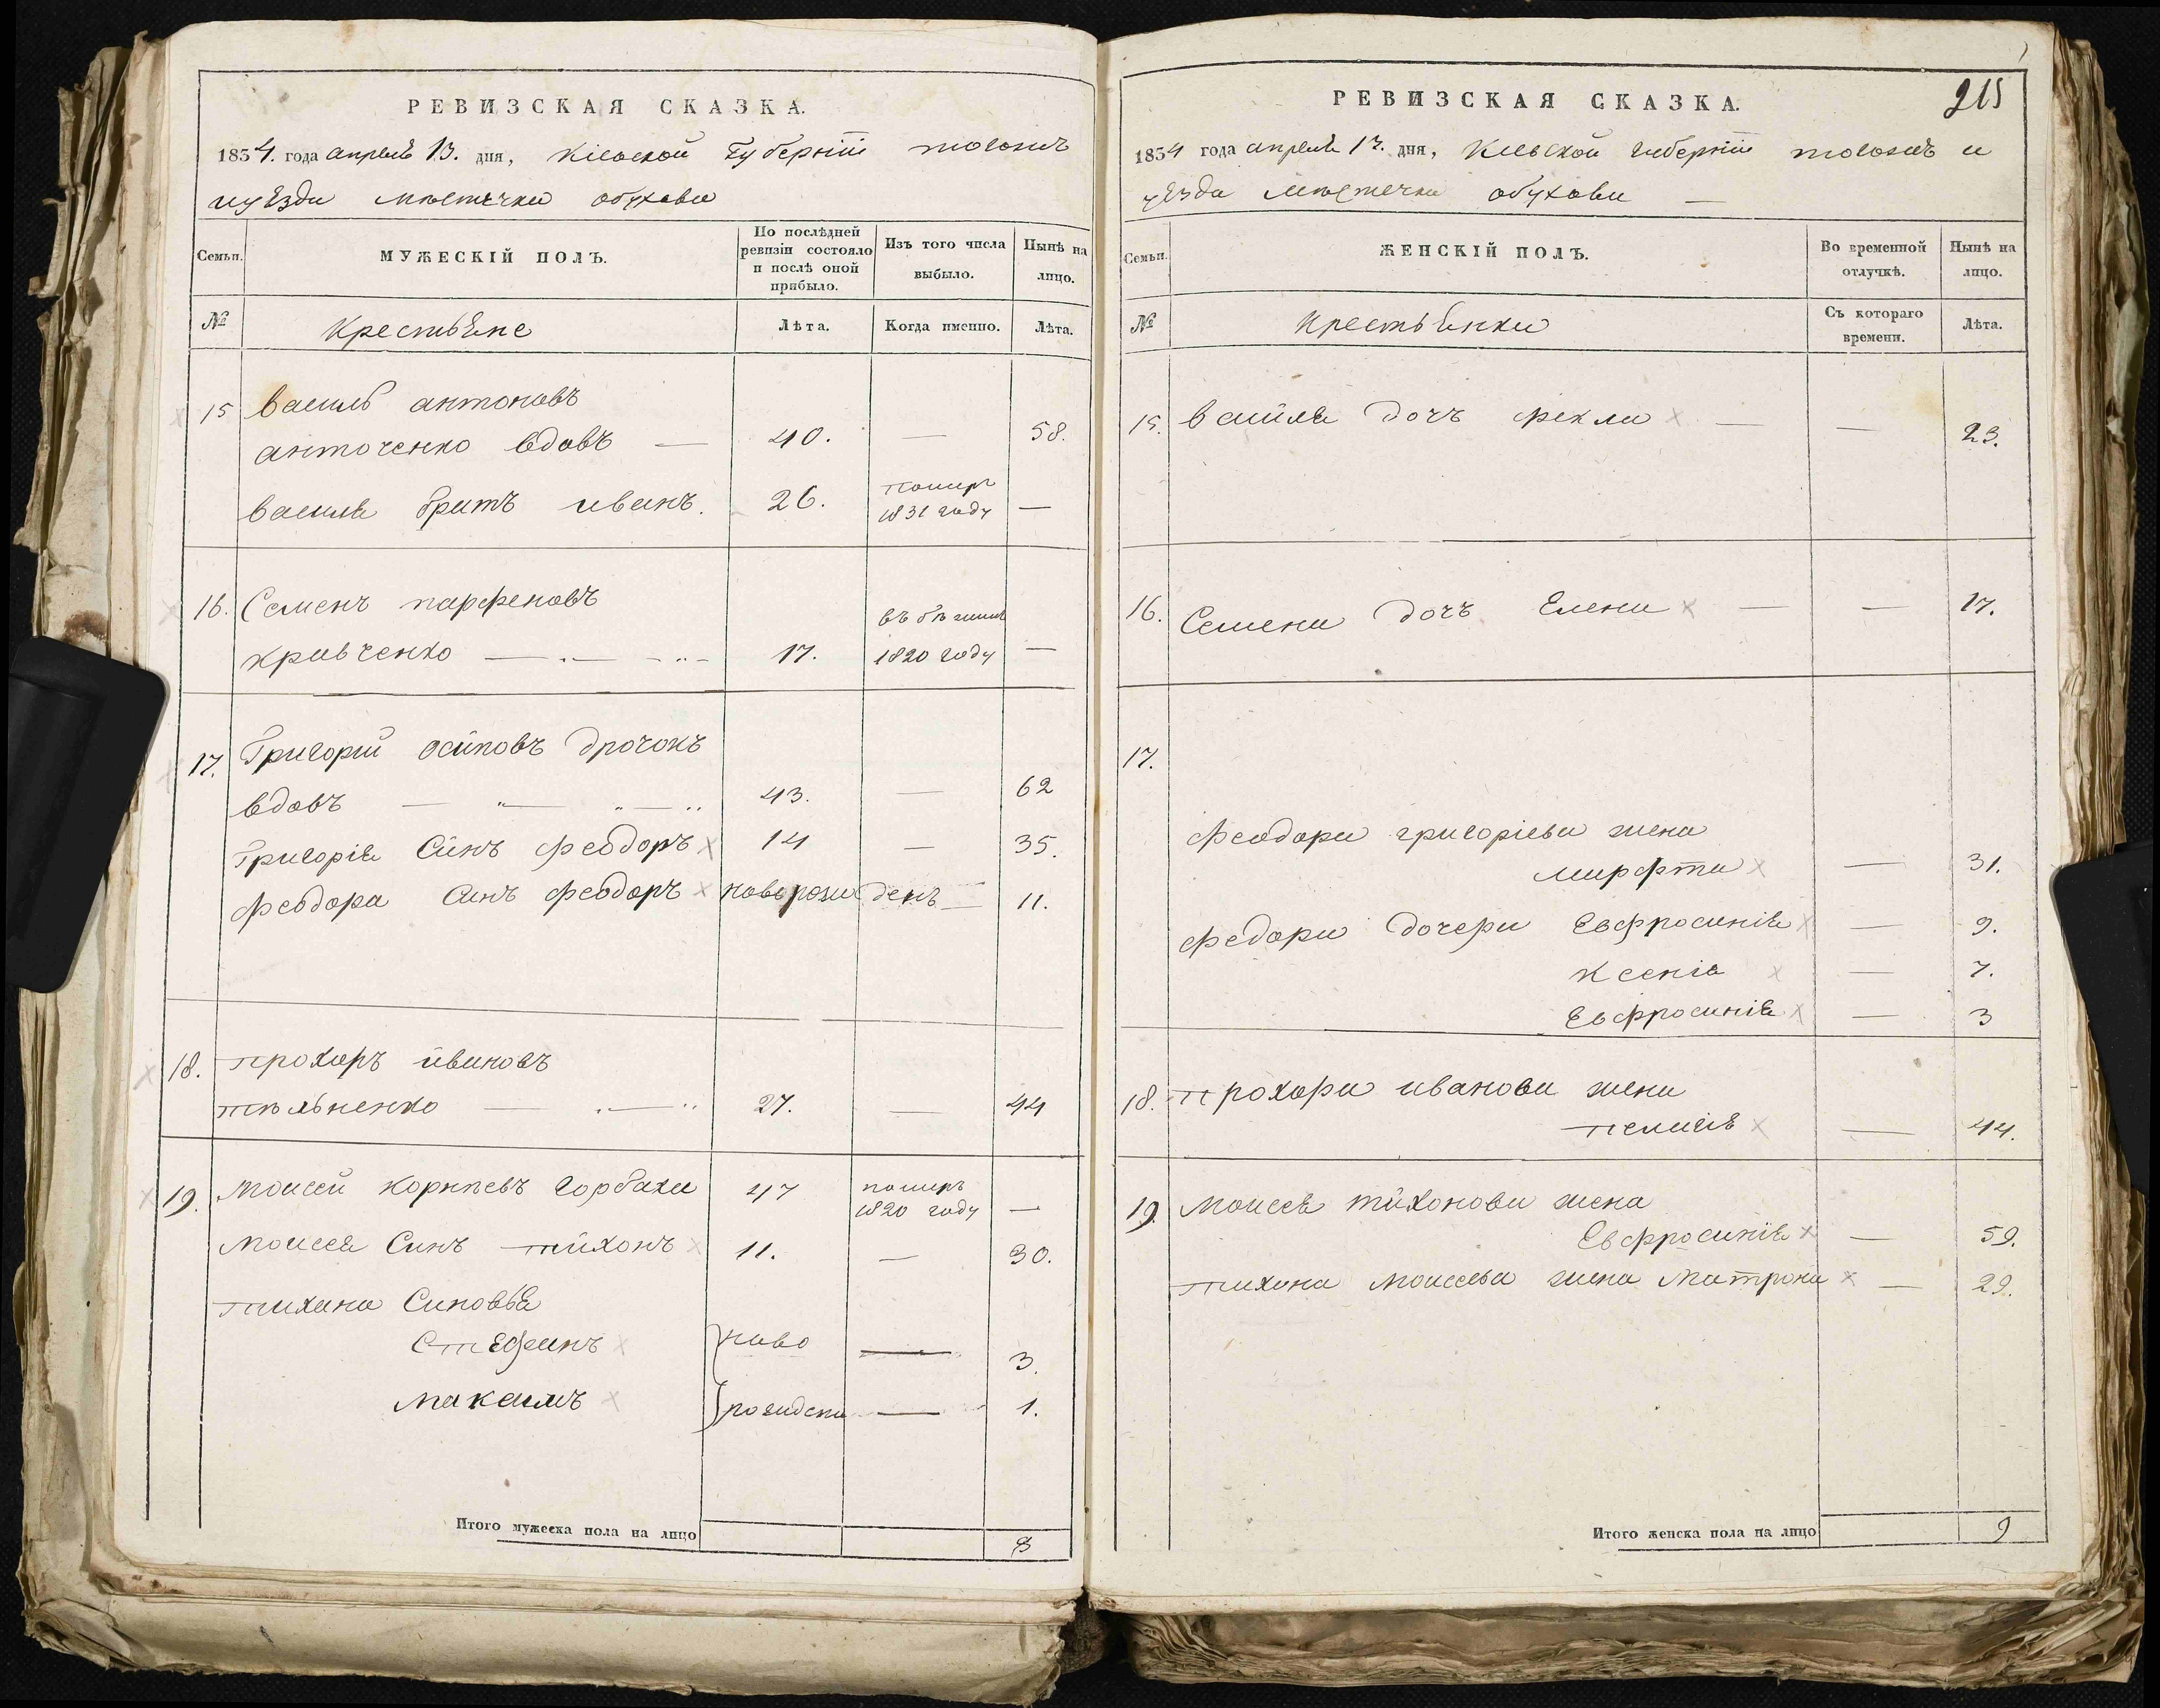 РЕВИЗСКАЯ СКАЗКА.
1834. года апреля 13. дня, Кіевской Губерніи тогожъ
и уѣзда местечка обухова
Семьи.
МУЖЕСКІЙ ПОЛЪ.
По послѣдней ревизіи состояло и послѣ оной прибыло.
Изъ того числа выбыло.
Нынѣ на лицо.
№
Крестьѣне
Лѣта.
Когда именно.
Лѣта.
15 Василь антоновъ
анточенко вдовъ — 40. — 58.
василя братъ иванъ. 26. помиръ 1831 году —
16. Семенъ парфеновъ
кравченко — 17. въ бѣгахъ 1820 году —
17. Григорій осиповъ дрочокъ
вдовъ — 43. — 62
Григорія Синъ феодоръ 14 — 35.
феодора Синъ феодоръ новорожденъ — 11.
18. прохоръ ивановъ
тѣльненко — 27. — 44
19. Моисей корнѣевъ горбаха 47 помиръ 1820 году —
Моисея Синъ тихонъ 11. — 30.
тихона Синовья
Стефанъ ново — 3.
Максимъ рождени — 1.
Итого мужеска пола на лицо 8
РЕВИЗСКАЯ СКАЗКА.
215
1834 года апреля 13. дня, Кіевской губерніи тогожъ и
уѣзда местечка обухова —
Семьи.
ЖЕНСКІЙ ПОЛЪ.
Во временной отлучкѣ.
Нынѣ на лицо.
№
крестьѣнки
Съ котораго времени.
Лѣта.
15. василя дочъ фекла — — 23.
16. Семена дочъ Елена — — 17.
17.
феодора григоріева жена
марфта — 31.
федора дочери Евфросинія — 9.
Ксенія — 7.
Евфросинія — 3
18. прохора иванова жена
пелагія — 44.
19. Моисея тихонова жена
Евфросинія — 59.
тихона Моисеева жена Матрона — 29.
Итого женска пола на лицо 9